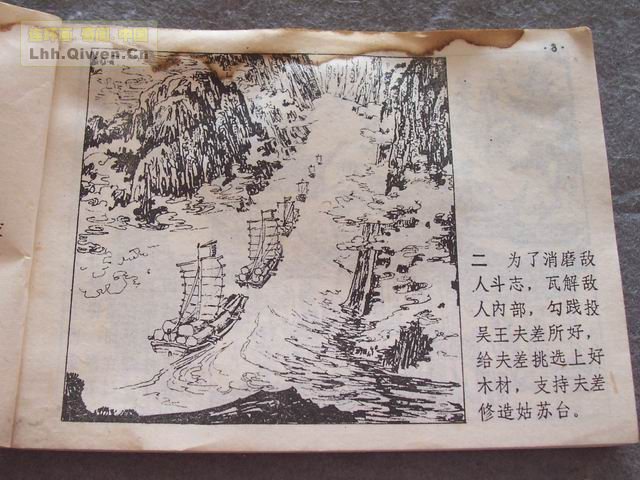 连环画.专阅.中国
Lhh.Qiwen.Cn
·3·
二 为了消磨敌
人斗志，瓦解敌
人内部，勾践投
吴王夫差所好，
给夫差挑选上好
木材，支持夫差
修造姑苏台。